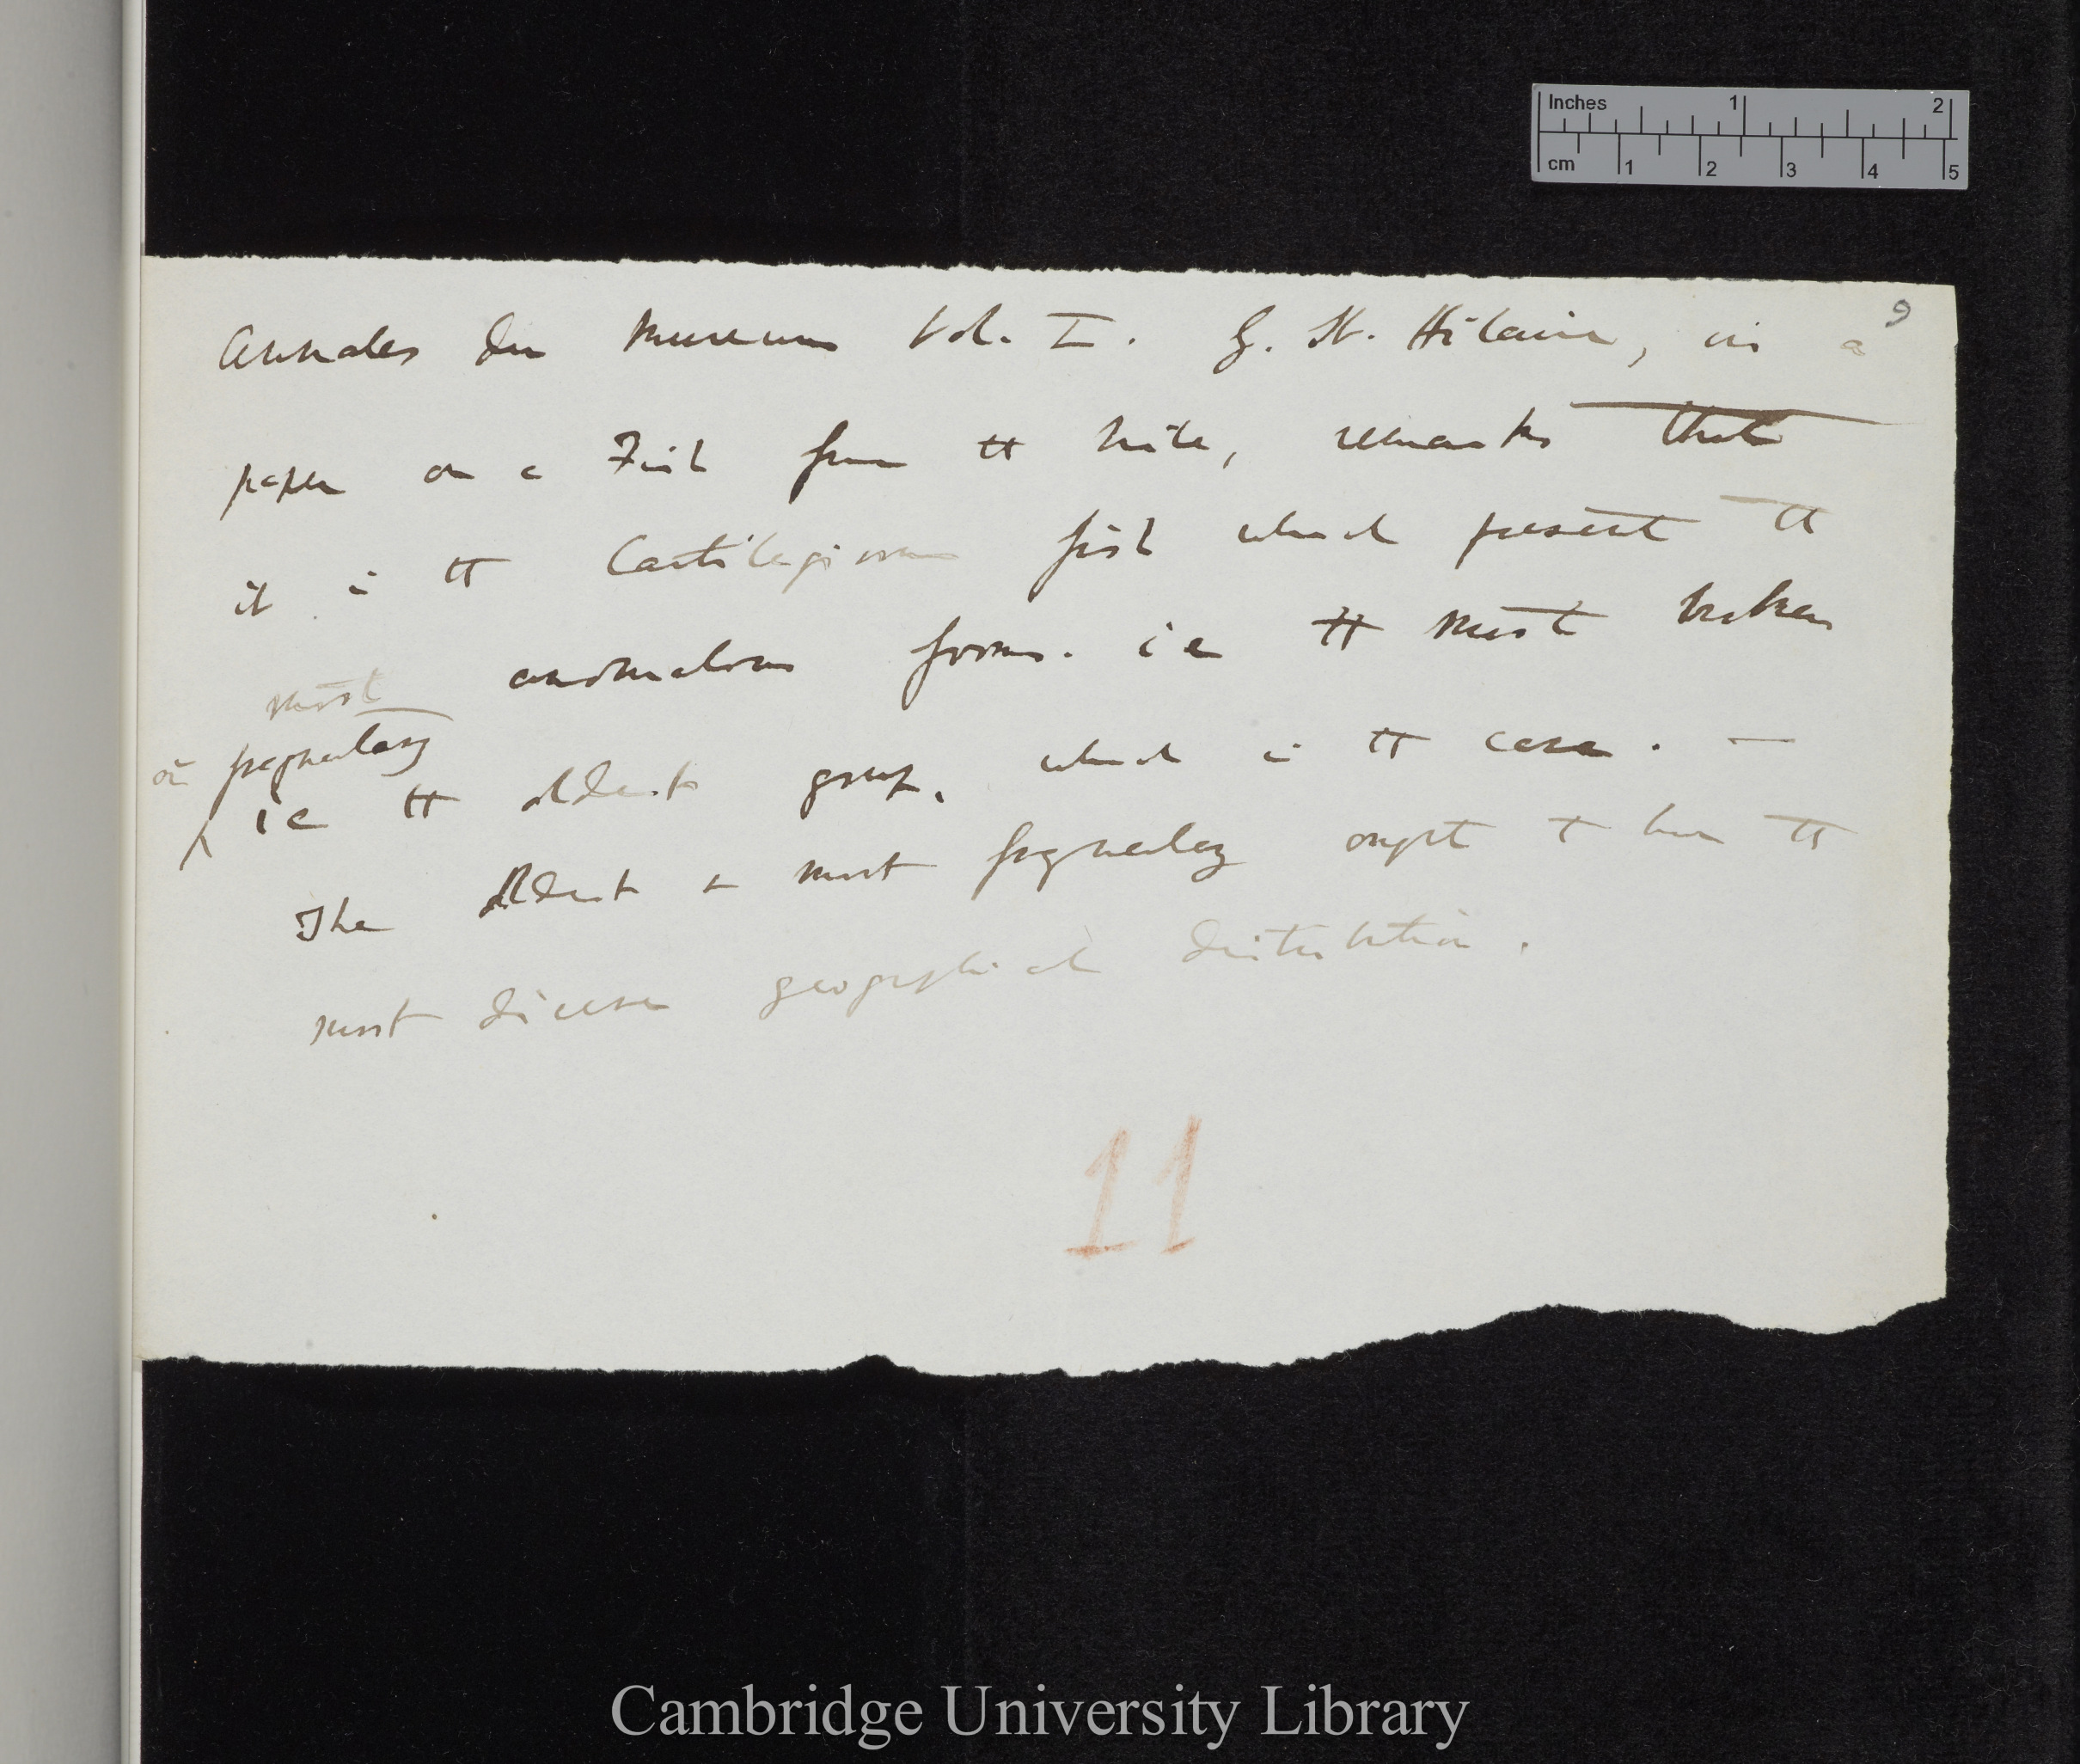 Inches 1 2
cm 1 2 3 4 5
9
Annales du Museum Vol. I. G. St. Hilaire, in a
paper on a Fish from the Nile, remarks that
it is the Cartilaginous fish which present the
most anomalous forms. ie the most broken
or fragmentary
ie the oldest group, which is the case. —
The oldest & most fragmentary ought to have the
most diverse geographical distribution.
11
Cambridge University Library